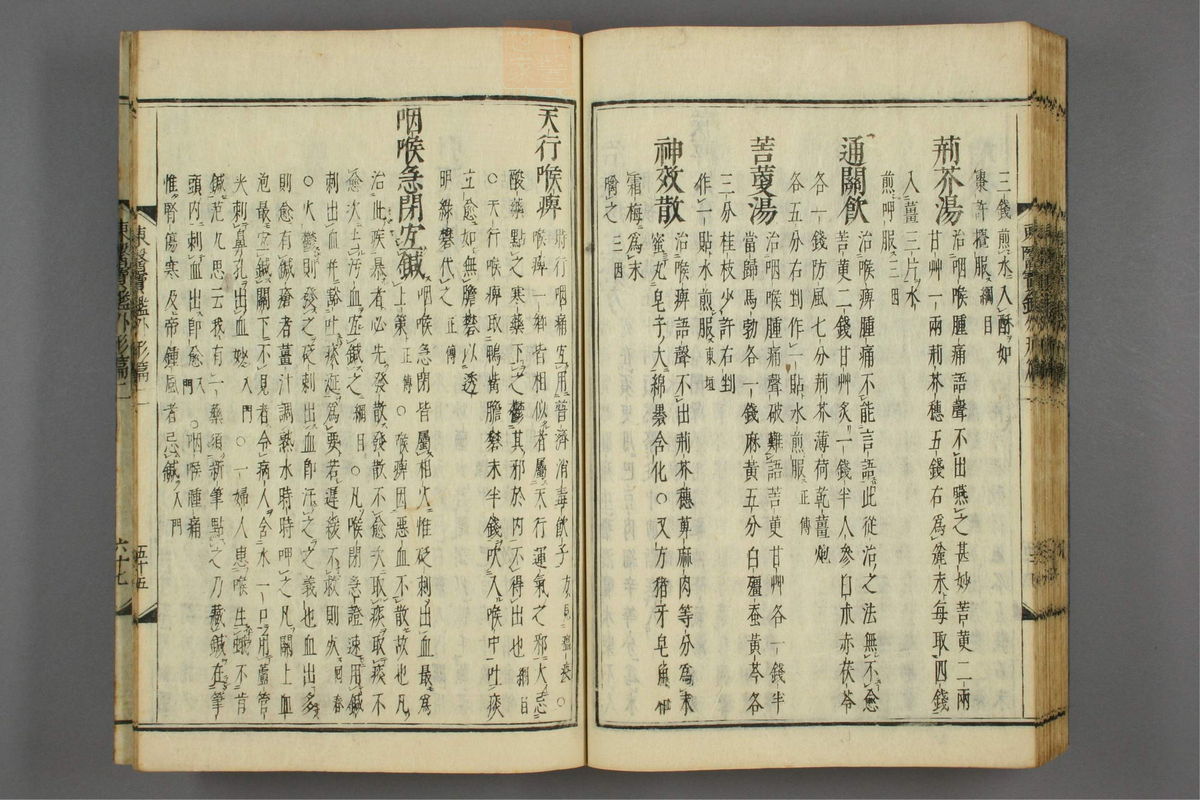 三錢煎水入酥如
棗許攪服綱目
荊芥湯
治咽喉腫痛語聲不出嚥之甚妙苦莄二兩
甘艸一兩荊芥穗五錢右爲麄末每取四錢
入薑三片水
煎呷服三因
通關飮
治喉痺腫痛不能言語此從治之法無不愈
苦莄二錢甘艸炙一錢半人參白朮赤茯苓
各一錢防風七分荊芥薄荷乾薑炮
各五分右剉作一貼水煎服正傳
苦莄湯
治咽喉腫痛聲破難語苦莄甘艸各一錢半
當歸馬勃各一錢麻黃五分白殭蚕黃芩各
三分桂枝少許右剉
作一貼水煎服東垣
神效散
治喉痺語聲不出荊芥穗萆麻肉等分爲末
蜜丸皂子大綿褁含化○又方猪牙皂角和
霜梅爲末
噙之三因
天行喉痺
時行咽痛宜用普濟消毒飮子方見瘟疫○
喉痺一種皆相似者屬天行運氣之邪大忌
酸藥點之寒藥下之鬱其邪於內不得出也綱目
○天行喉痺取鴨觜膽礬末半錢吹入喉中吐痰
立愈如無膽礬以透
明綠礬代之正傳
咽喉急閉宜鍼
咽喉急閉皆屬相火惟砭刺出血最爲
上策正傳○喉痺因惡血不散故也凡
治此疾暴者必先發散發散不愈次取痰取痰不
愈次去汚血宜鍼之綱目○凡喉閉急證速用鍼
刺出血幷豁吐痰涎爲要若遲緩不救則死回春
○火鬱則發之砭刺出血卽汗之之義也血出多
則愈有鍼瘡者薑汁調熟水時時呷之凡關上血
泡最宜鍼關下不見者令病人含水一口用蘆管
尖刺鼻孔出血妙入門○一婦人患喉生蛾不肯
鍼范九思云我有一藥須新筆點之乃藏鍼在筆
頭內刺血出卽愈入門○咽喉腫痛
惟腎傷寒及帝鍾風者忌鍼入門
東醫寶鑑外形篇二
五十五
六十七